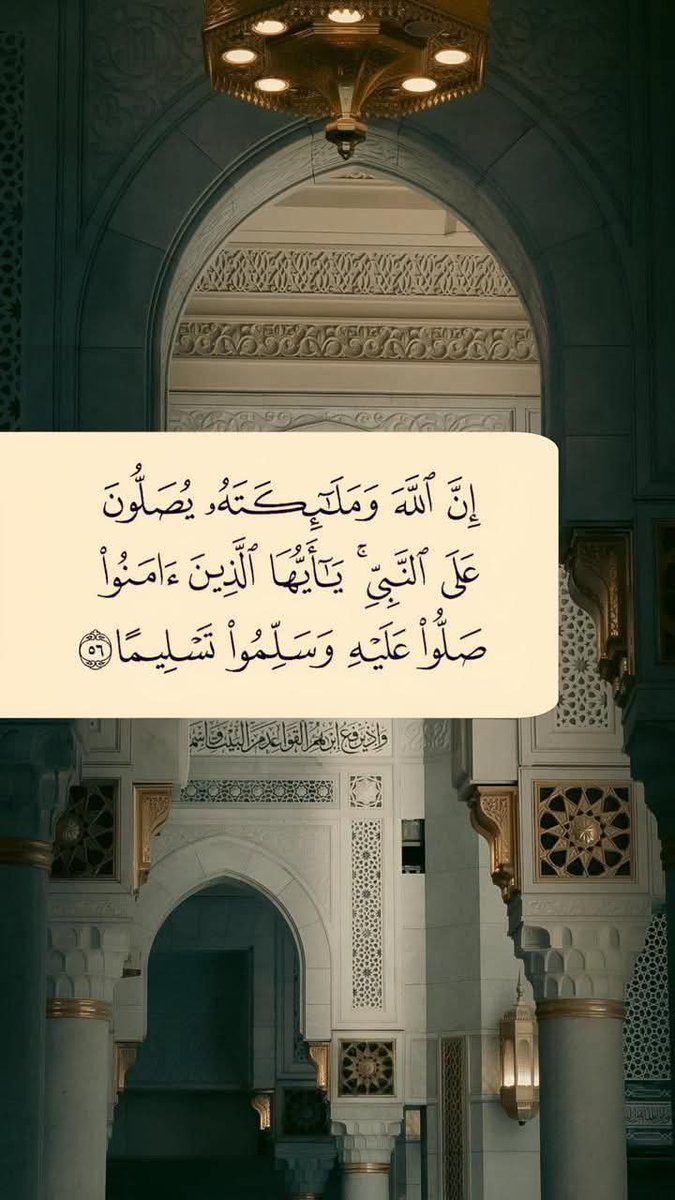 إِنَّ ٱللَّهَ وَمَلَٰٓئِكَتَهُۥ يُصَلُّونَ
عَلَى ٱلنَّبِيِّ ۚ يَٰٓأَيُّهَا ٱلَّذِينَ ءَامَنُوا۟
صَلُّوا۟ عَلَيْهِ وَسَلِّمُوا۟ تَسْلِيمًا ٥٦
وإذ يرفع إبراهيم القواعد من البيت وإسم